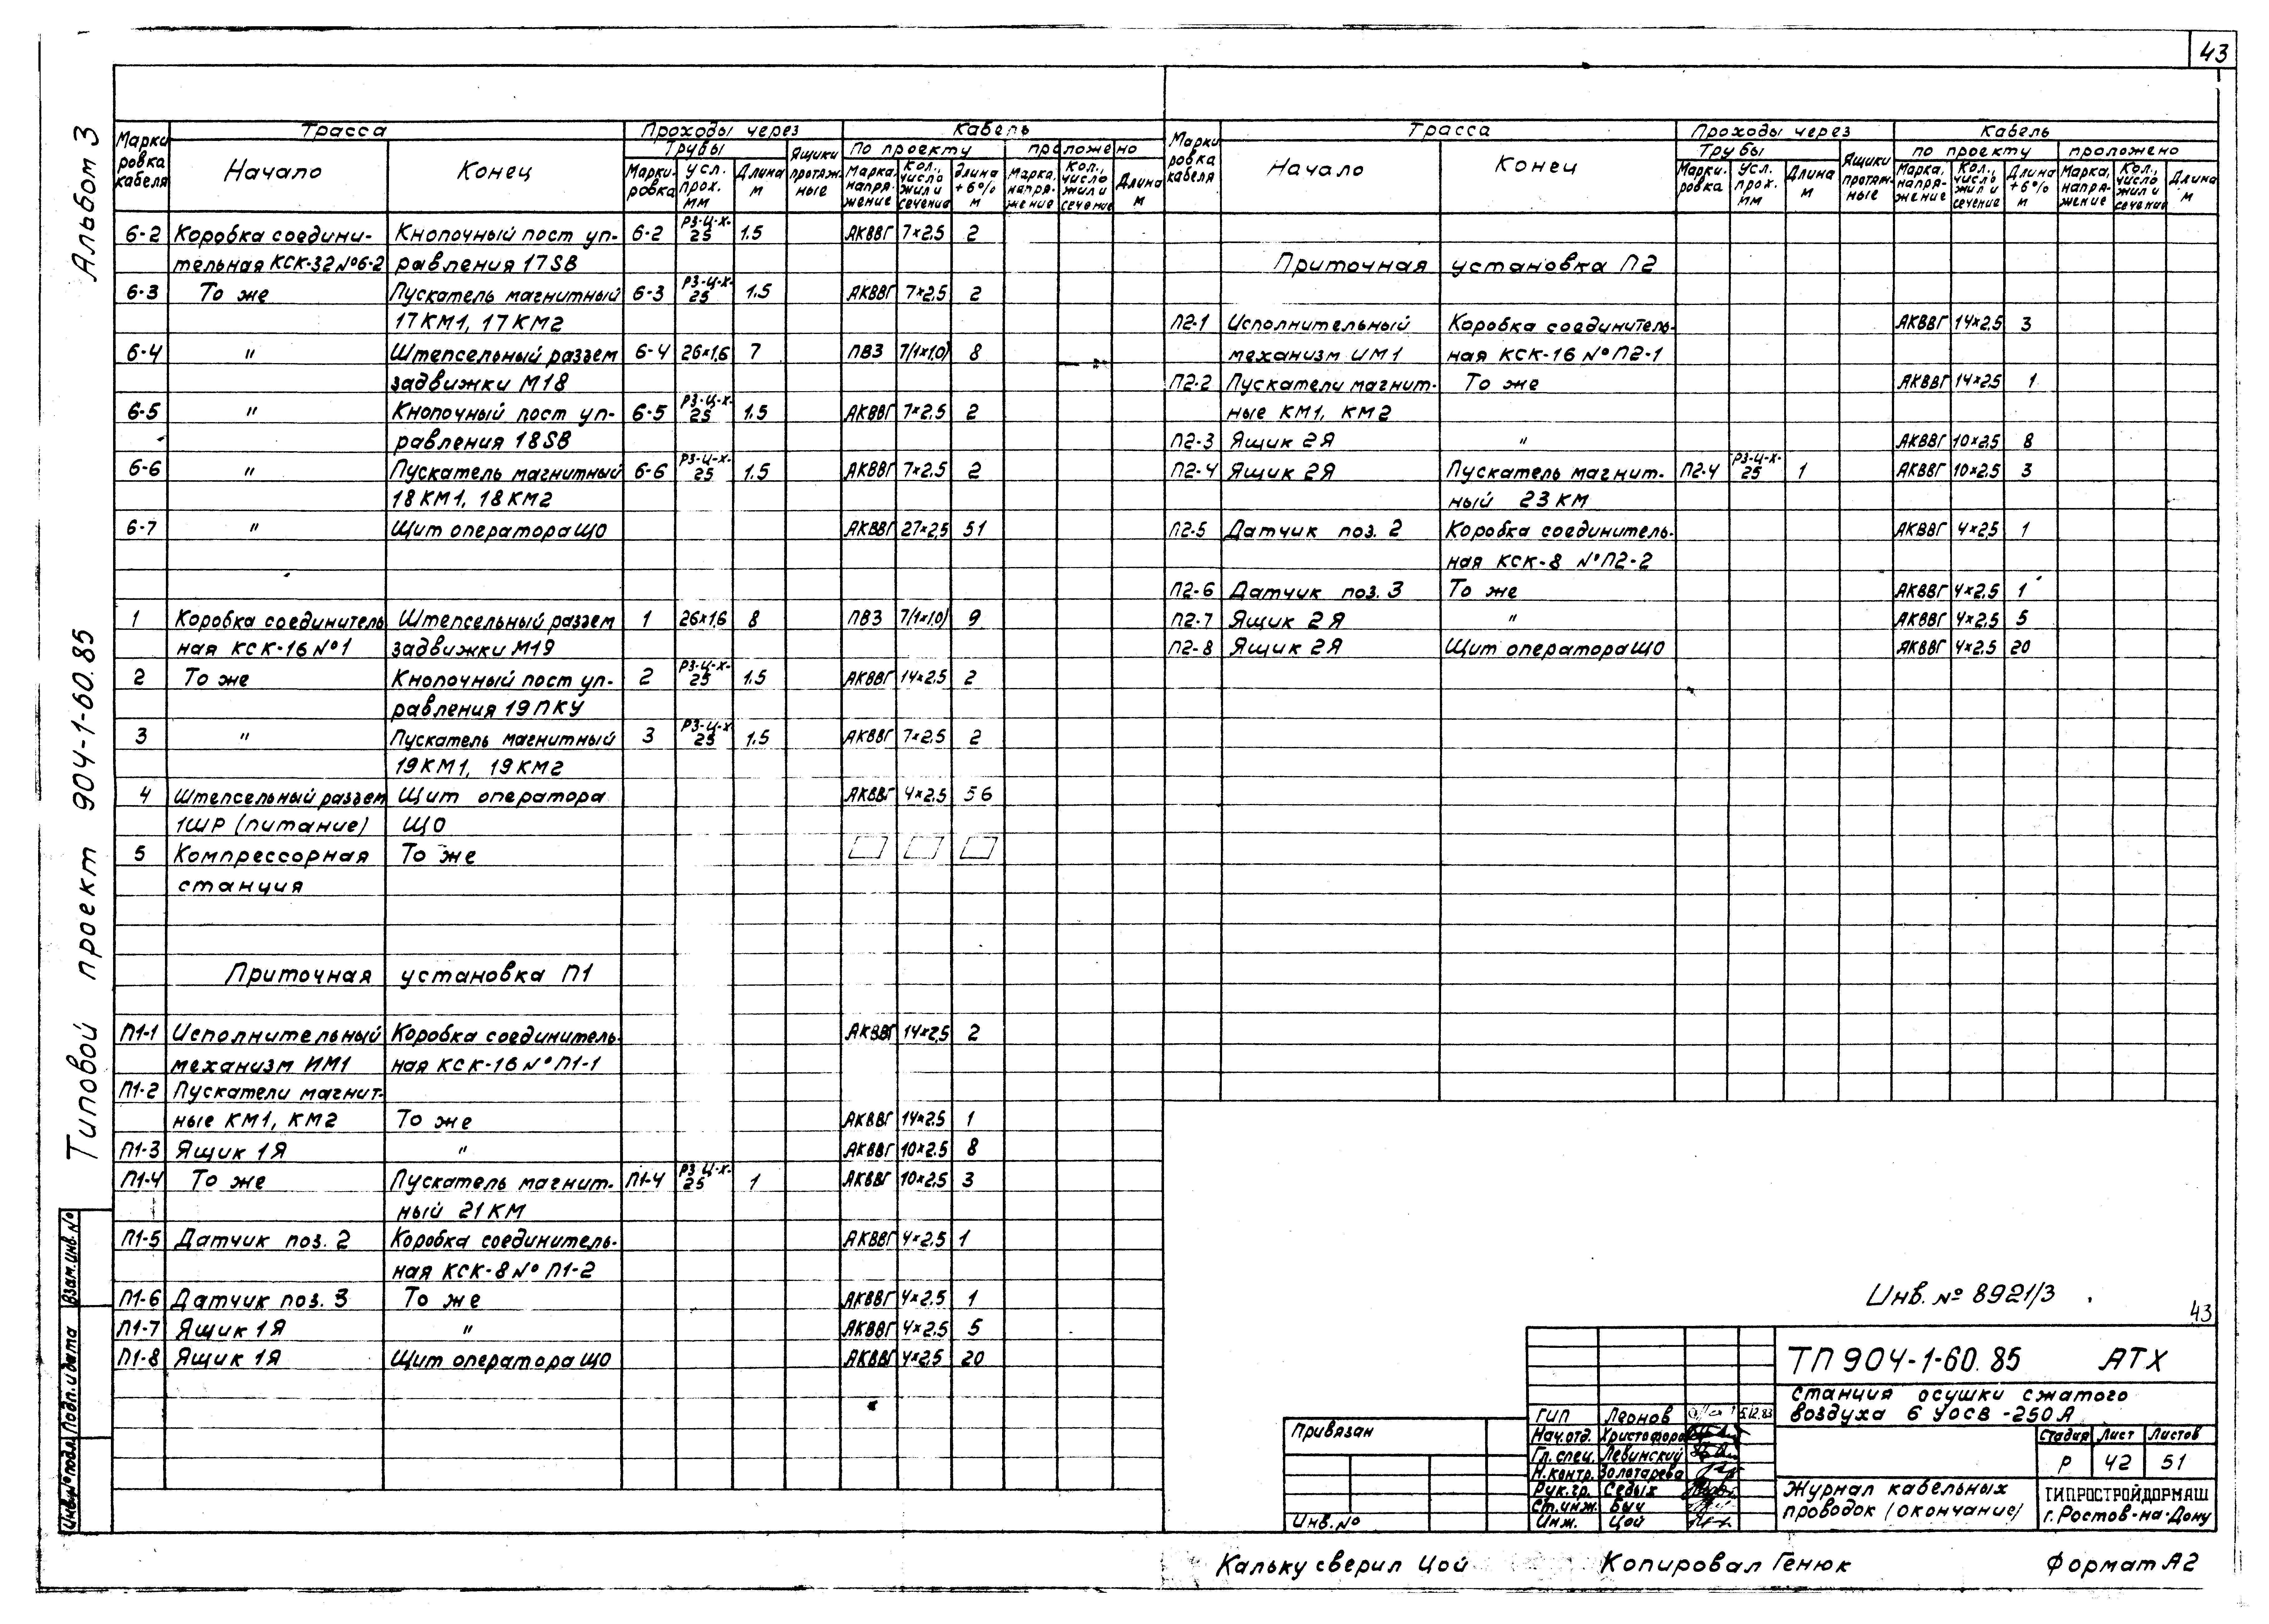 43
Альбом 3
Типовой проект 904-1-60.85
Марки ровка кабеля | Трасса | Проходы через | Кабель
Начало | Конец | Трубы | Ящики протяж- ные | по проекту | проложено
Марки- ровка | усл. прох. мм | Длина м | Марка, напря- жение | Кол., число жил и сечение | Длина +6% м | Марка, напря- жение | Кол., число жил и сечение | Длина м
6-2 Коробка соедини- Кнопочный пост уп- 6-2 РЗ-Ц-Х-25 1.5 АКВВГ 7×2,5 2
тельная КСК-32 №6-2 равления 17SB
6-3 То же Пускатель магнитный 6-3 РЗ-Ц-Х-25 1.5 АКВВГ 7×2,5 2
17КМ1, 17КМ2
6-4 " Штепсельный разъем 6-4 26×1,6 7 ПВ3 7/1×1,0) 8
задвижки М18
6-5 " Кнопочный пост уп- 6-5 РЗ-Ц-Х-25 1.5 АКВВГ 7×2,5 2
равления 18SB
6-6 " Пускатель магнитный 6-6 РЗ-Ц-Х-25 1.5 АКВВГ 7×2.5 2
18КМ1, 18КМ2
6-7 " Щит оператора ЩО АКВВГ 27×2,5 51
1 Коробка соединитель Штепсельный разъем 1 26×1,6 8 ПВ3 7/1×1,0) 9
ная КСК-16 №1 задвижки М19
2 То же Кнопочный пост уп- 2 РЗ-Ц-Х-25 1.5 АКВВГ 14×2,5 2
равления 19ПКУ
3 " Пускатель магнитный 3 РЗ-Ц-Х-25 1.5 АКВВГ 7×2.5 2
19КМ1, 19КМ2
4 Штепсельный разъем Щит оператора АКВВГ 4×2,5 56
1ШР (питание) ЩО
5 Компрессорная То же
станция
Приточная установка П1
П1-1 Исполнительный Коробка соединитель- АКВВГ 14×2,5 2
механизм ИМ1 ная КСК-16 № П1-1
П1-2 Пускатели магнит-
ные КМ1, КМ2 То же АКВВГ 14×2.5 1
П1-3 Ящик 1Я " АКВВГ 10×2.5 8
П1-4 То же Пускатель магнит- П1-4 РЗ-Ц-Х-25 1 АКВВГ 10×2.5 3
ный 21КМ
П1-5 Датчик поз. 2 Коробка соединитель- АКВВГ 4×2.5 1
ная КСК-8 № П1-2
П1-6 Датчик поз. 3 То же АКВВГ 4×2.5 1
П1-7 Ящик 1Я " АКВВГ 4×2.5 5
П1-8 Ящик 1Я Щит оператора ЩО АКВВГ 4×2,5 20
Марки ровка кабеля | Трасса | Проходы через | Кабель
Начало | Конец | Трубы | Ящики протяж- ные | по проекту | проложено
Марки- ровка | усл. прох. мм | Длина м | Марка, напря- жение | Кол., число жил и сечение | Длина +6% м | Марка, напря- жение | Кол., число жил и сечение | Длина м
Приточная установка П2
П2-1 Исполнительный Коробка соединитель- АКВВГ 14×2,5 3
механизм ИМ1 ная КСК-16 № П2-1
П2-2 Пускатели магнит- То же АКВВГ 14×2,5 1
ные КМ1, КМ2
П2-3 Ящик 2Я " АКВВГ 10×2,5 8
П2-4 Ящик 2Я Пускатель магнит- П2-4 РЗ-Ц-Х-25 1 АКВВГ 10×2.5 3
ный 23КМ
П2-5 Датчик поз. 2 Коробка соединитель- АКВВГ 4×2,5 1
ная КСК-8 № П2-2
П2-6 Датчик поз. 3 То же АКВВГ 4×2,5 1
П2-7 Ящик 2Я " АКВВГ 4×2.5 5
П2-8 Ящик 2Я Щит оператора ЩО АКВВГ 4×2.5 20
Инв. № 8921/3
43
ТП 904-1-60.85 АТХ
станция осушки сжатого
воздуха 6 УОСВ-250А
Стадия Лист Листов
Р 42 51
Журнал кабельных
проводок (окончание)
ГИПРОСТРОЙДОРМАШ
г. Ростов-на-Дону
ГИП Леонов 5.12.83
Нач.отд. Христофоро
Гл. спец. Левинский
Н.контр. Золотарева
Рук.гр. Седых
Ст.инж. Быч
Инж. Цой
Привязан
Инв. №
Инв.№подл. Подп.и дата Взам.инв.№
Кальку сверил Цой
Копировал Генюк
Формат А2